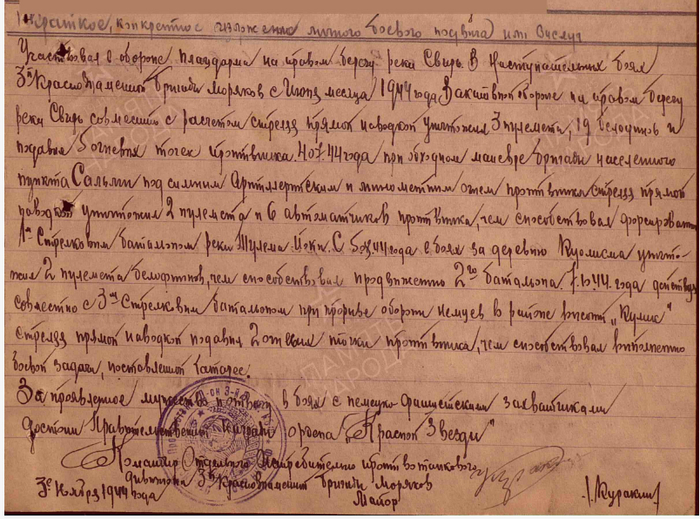 Краткое, конкретное изложение личного боевого подвига или заслуг
Участвовал в обороне плацдарма на правом берегу реки Свирь. В наступательных боях
3й Краснознаменной бригады моряков с июня месяца 1944 года. В активной обороне на правом берегу
реки Свирь совместно с расчетом стреляя прямой наводкой уничтожил 3 пулемета, 19 белофинов и
подавил 5 огневых точек противника. 4.07.44 года при обходном маневре бригады населенного
пункта Сальми под сильным артиллерийским и минометным огнем противника стреляя прямой
наводкой уничтожил 2 пулемета и 6 автоматчиков противника, чем способствовал форсированию
1м стрелковым батальоном реки Тулема-Йоки. С 8.44 года в боях за деревню Куолисма уничто-
жил 2 пулемета белофинов, чем способствовал продвижению 2го батальона 7.10.44. года действуя
совместно с 3м стрелковым батальоном при прорыве обороны немцев в районе высоты "Кумик"
стреляя прямой наводкой подавил 2 огневые точки противника, чем способствовал выполнению
боевой задачи, поставленной батарее.
За проявленное мужество и отвагу в боях с немецко-фашистскими захватчиками
достоин Правительственной награды ордена "Красной Звезды"
Командир Отдельного Истребительно противотанкового
дивизиона 3й Краснознаменной бригады Моряков
3 ноября 1944 года Майор /Куракин/
ПАМЯТЬ НАРОДА